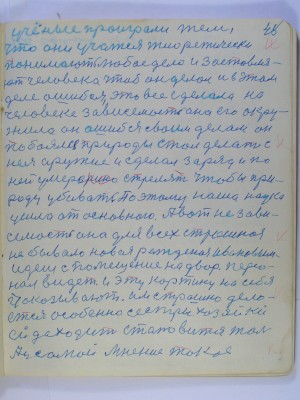 учёные проиграли тем, 48
что они учатся теоретически
понимают любое дело и заставля-
ют человека чтоб он делал и в этом
деле ошибся, это все сделала на
человеке зависемость она его окру-
жила он ошибся своим делам он
побаялся природы стал делать с
нея аружие и сделал заряд и по
ней умер стрелят чтобы при-
роду убивать. Поэтому наша наука
ушла от основного. А вот не зави-
семость она для всех страшная
не бывало новая рождения Ивановым.
идеи с помещение на двор. перо-
нал видет и эту картину на себя
показывают. им страшно дело-
ется особенно сестри хозяйки
ей даходит становится жал
А у самой мнение такое